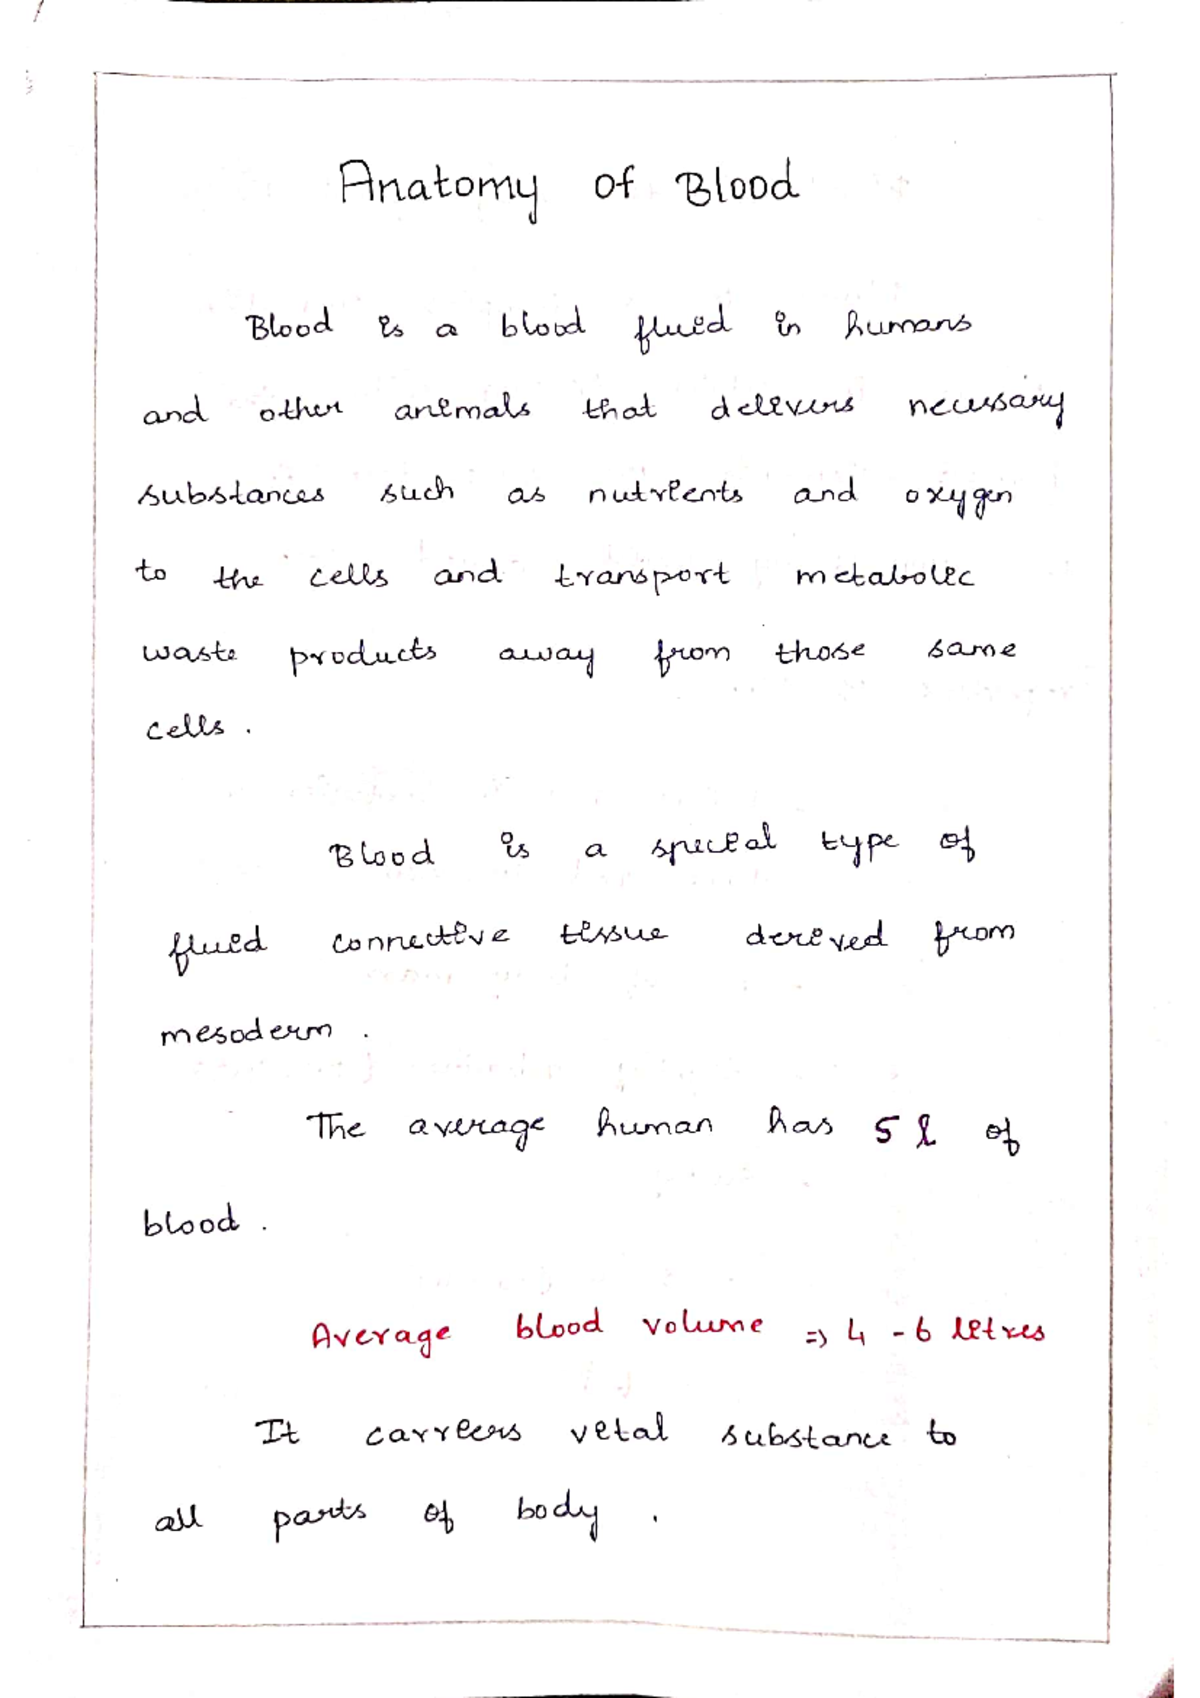 Anatomy of Blood
Blood is a blood fluid in humans
and other animals that delivers necessary
substances such as nutrients and oxygen
to the cells and transport metabolic
waste products away from those same
cells.
Blood is a special type of
fluid connective tissue derived from
mesoderm.
The average human has 5 l of
blood.
Average blood volume => 4 - 6 litres
It carriers vital substance to
all parts of body.